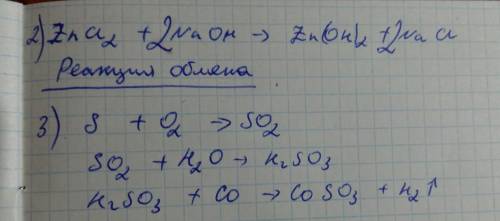 2) ZnCl₂ + 2NaOH → Zn(OH)₂ + 2NaCl
Реакция обмена
3) S + O₂ → SO₂
SO₂ + H₂O → H₂SO₃
H₂SO₃ + Co → CoSO₃ + H₂↑